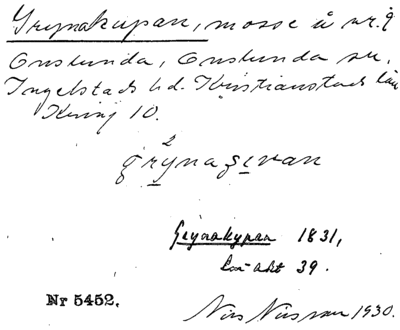 Grynakupan, mosse å nr. 9
Onslunda, Onslunda sn,
Ingelstads hd. Kristianstads län
Kring 10.
Grynakypan 1831,
lm-akt 39.
Nr 5452.
Nils Nilsson 1930.